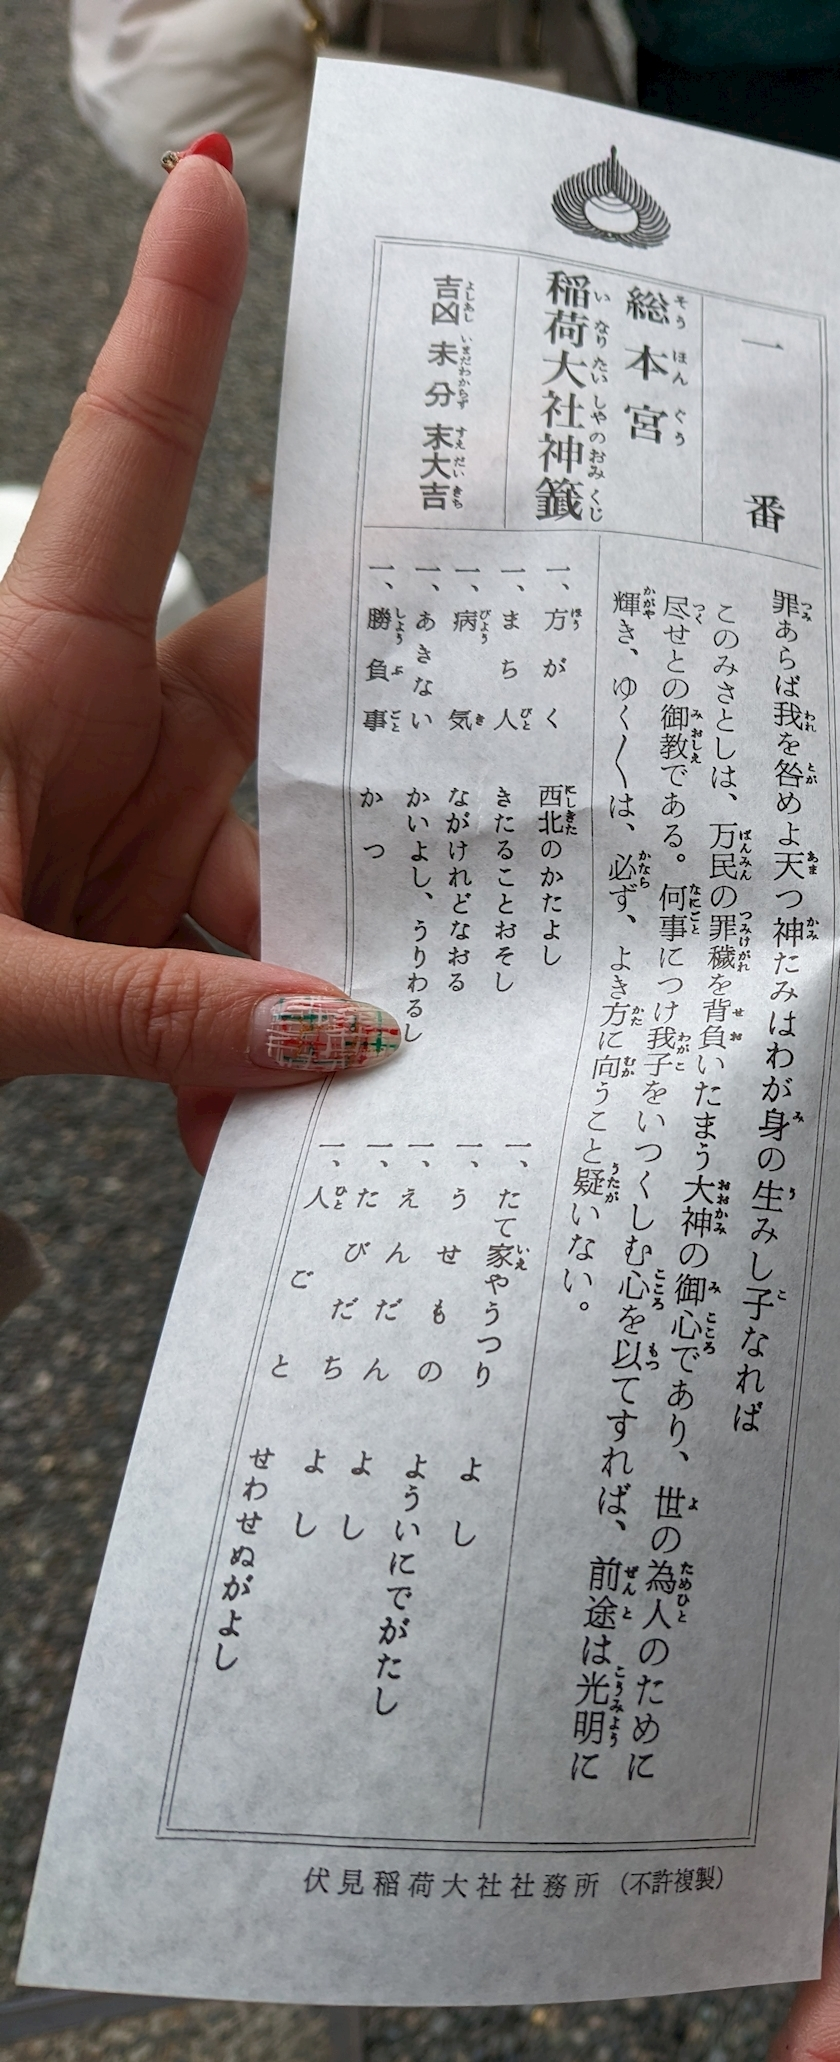 一番
総本宮
稲荷大社神籤
吉凶未分末大吉
罪あらば我を咎めよ天つ神たみはわが身の生みし子なれば
このみさとしは、万民の罪穢を背負いたまう大神の御心であり、世の為人のために
尽せとの御教である。何事につけ我子をいつくしむ心を以てすれば、前途は光明に
輝き、ゆく〱は、必ず、よき方に向うこと疑いない。
一、方がく 西北のかたよし
一、まち人 きたることおそし
一、病気 ながけれどなおる
一、あきない かいよし、うりわるし
一、勝負事 かつ
一、たて家やうつり よし
一、うせもの よういにでがたし
一、えんだん よし
一、たびだち よし
一、人ごと せわせぬがよし
伏見稲荷大社社務所（不許複製）